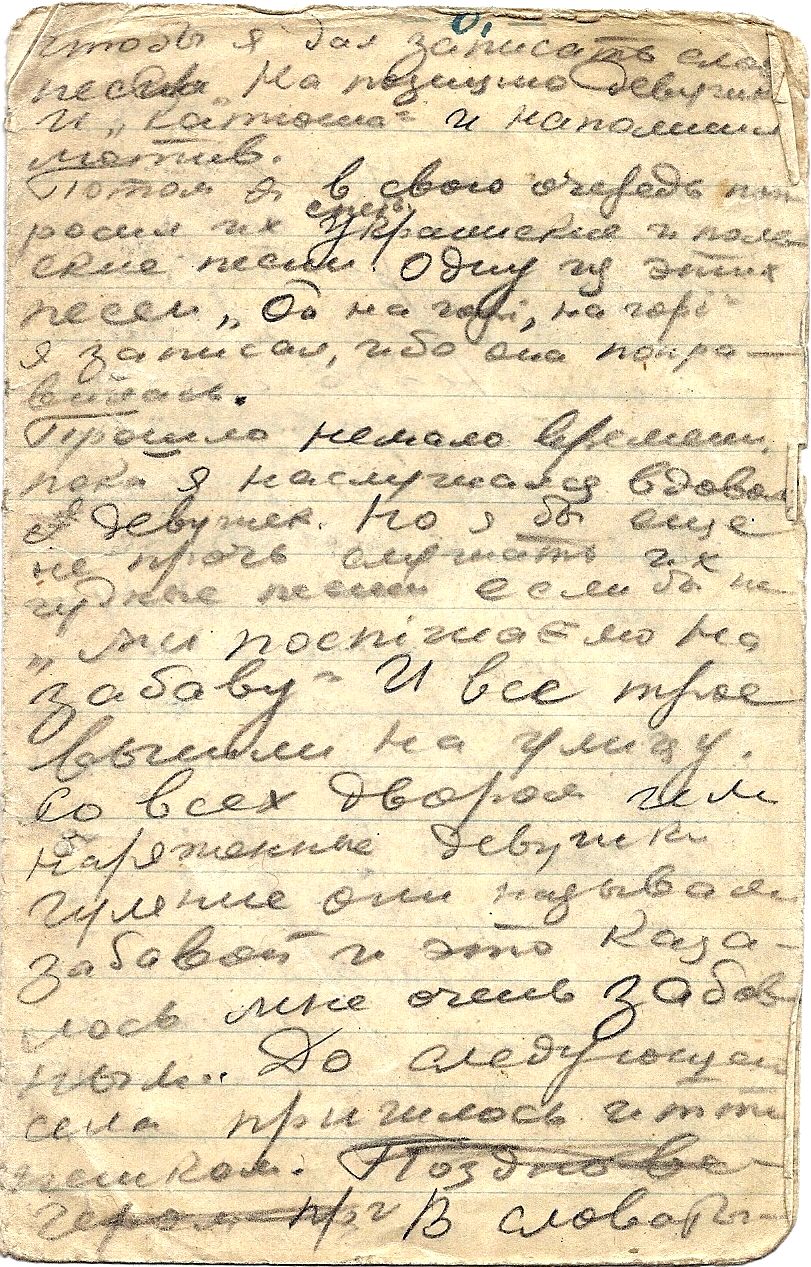 чтобы я дал записать сло
песни На позицию девушка
и „Катюша“ и напомнил
мотив.
Потом я в свою очередь поп
спеть
росил их украинские и поль-
ские песни. Одну из этих
песен „Ой на горі, на горі“
я записал, ибо она понра-
вилась.
Прошло немало времени,
пока я наслушался вдовол
девушек. Но я бы еще
не прочь слушать их
чудные песни если бы не
„ми поспішаємо на
забаву“ И все трое
вышли на улицу.
Со всех дворов шли
наряженные девушки
гуляние они называли
забавой и это каза-
лось мне очень забав
ным. До следующего
села пришлось итти
пешком. Поздно ве-
чером при В словары-